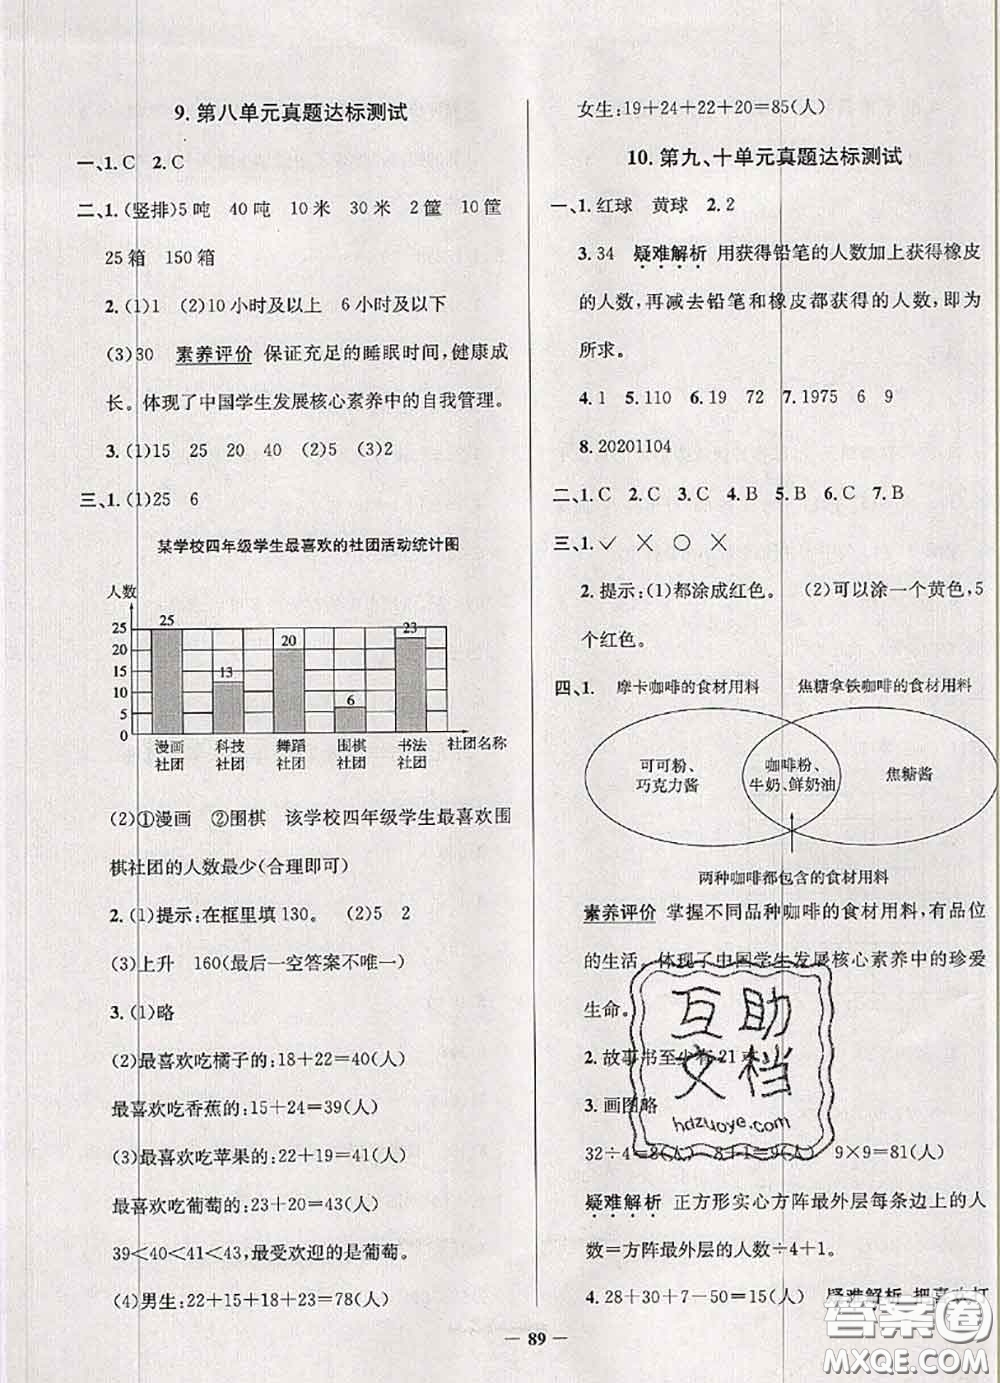 9. 第八单元真题达标测试
一、1. C  2. C
二、1. (竖排)5 吨  40 吨  10 米  30 米  2 筐  10 筐
25 箱  150 箱
2. (1)1  (2)10 小时及以上  6 小时及以下
(3)30  素养评价  保证充足的睡眠时间,健康成
长。体现了中国学生发展核心素养中的自我管理。
3. (1)15  25  20  40  (2)5  (3)5
三、1. (1)25  6
某学校四年级学生最喜欢的社团活动统计图
人数
25
20
15
10
5
0
25
13
20
6
23
漫画社团
科技社团
舞蹈社团
围棋社团
书法社团
社团名称
(2)①漫画  ②围棋  该学校四年级学生最喜欢围
棋社团的人数最少(合理即可)
2. (1)提示:在框里填 130。  (2)5  2
(3)上升  160(最后一空答案不唯一)
3. (1)略
(2)最喜欢吃橘子的:18+22=40(人)
最喜欢吃香蕉的:15+24=39(人)
(3)最喜欢吃苹果的:22+19=41(人)
最喜欢吃葡萄的:23+20=43(人)
39<40<41<43,最受欢迎的是葡萄。
(4)男生:22+15+18+23=78(人)
女生:19+24+22+20=85(人)
10. 第九、十单元真题达标测试
一、1. 红球  黄球  2. 2
3. 34  疑难解析  用获得铅笔的人数加上获得橡皮
的人数,再减去铅笔和橡皮都获得的人数,即为
所求。
4. 1  5. 110  6. 19  72  7. 1975  6  9
8. 20201104
二、1. C  2. C  3. C  4. B  5. B  6. C  7. B
三、1. ✓  ×  ○  ×
2. 提示:(1)都涂成红色。  (2)可以涂一个黄色,5
个红色。
四、1.  摩卡咖啡的食材用料  焦糖拿铁咖啡的食材用料
可可粉、
巧克力酱
咖啡粉、
牛奶、鲜奶油
焦糖酱
两种咖啡都包含的食材用料
素养评价  掌握不同品种咖啡的食材用料,有品位
的生活,体现了中国学生发展核心素养中的珍爱
生命。
2. 故事书至少有 21 本
3. 画图略
32÷4=8(人)  8+1=9(人)  9×9=81(人)
疑难解析  正方形实心方阵最外层每条边上的人
数=方阵最外层的人数÷4+1。
4. 28+30+7-50=15(人)  疑难解析  把喜欢打
互助
文档
hdzuoye.com
答案圈
MXQE.COM
— 89 —